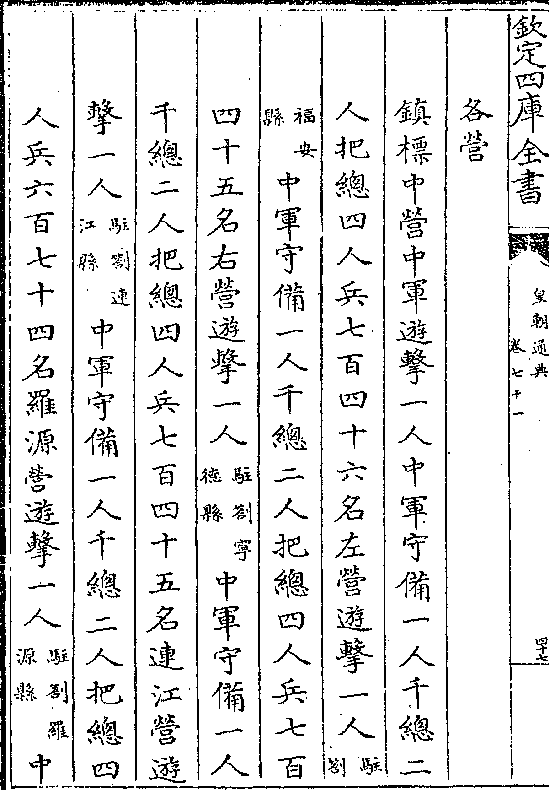 欽定四庫全書
皇朝通典
卷七十一
四十七
各營
鎮標中營中軍遊擊一人中軍守備一人千總二
人把總四人兵七百四十六名左營遊擊一人駐劄
福安縣中軍守備一人千總二人把總四人兵七百
四十五名右營遊擊一人駐劄寧德縣中軍守備一人
千總二人把總四人兵七百四十五名連江營遊
擊一人駐劄連江縣中軍守備一人千總二人把總四
人兵六百七十四名羅源營遊擊一人駐劄羅源縣中